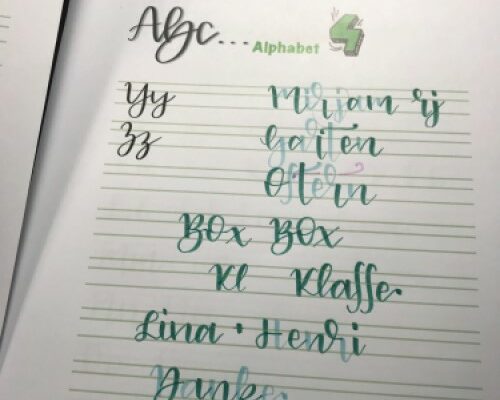 Abc... Alphabet 4
Yy Mirjam rj
Zz Garten
Ostern
Box Box
Kl Klasse.
Lina + Henri
Danke.